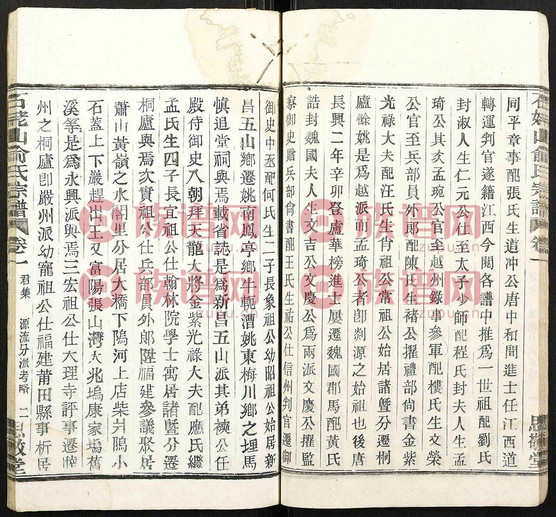 同平章事配張氏生道冲公唐中和間進士任江西道
轉運判官遂籍江西今閱各譜中推爲一世祖配劉氏
封淑人生仁元公任至太子少師配程氏封夫人生文
琦公其次孟琬公官至越州錄事參軍配樓氏生文榮
公官至兵部員外郎配陳氏生䄂公擢禮部尙書金紫
光祿大夫配汪氏生肖祖公常祖公始居諸暨至后亭
廬餘姚是爲越派前孟琦公者卽剡源之始祖也后唐
長興二年辛卯登盧華榜進士屢遷魏國郡馬配黃氏
誥封魏國夫人生文吉公文慶公爲兩派文慶公擢監
察御史
御史中丞配何氏生二子長象祖公幼昭祖公始居新
昌五山鄉遷姚南鳳亭鄉牛軛漕姚東梅川鄉之埋馬
愼追堂祠與焉載省誌是爲新昌五山派其弟襖公任
殿侍御史八朝拜天龍大將金紫光祿大夫配應氏繼
孟氏生四子長宜祖公仕翰林院學士寓居諸暨分遷
桐廬與焉次實祖公仕兵部員外郎陞福建參議聚居
蕭山黃嶺之水閣里分居大橋下隖河上店柴塢隖小
石蓋上下嚴趕出王又富陽張山灣大兆塢康家塢舊
溪等是爲永興派與焉三宏祖公仕大理寺評事遷睦
州之桐廬卽嚴州派幼寵祖公仕福建莆田縣事析居
石姥山俞氏宗譜
卷一
君集
源流分派考略
二
思敬堂
族譜网
zupu.cn